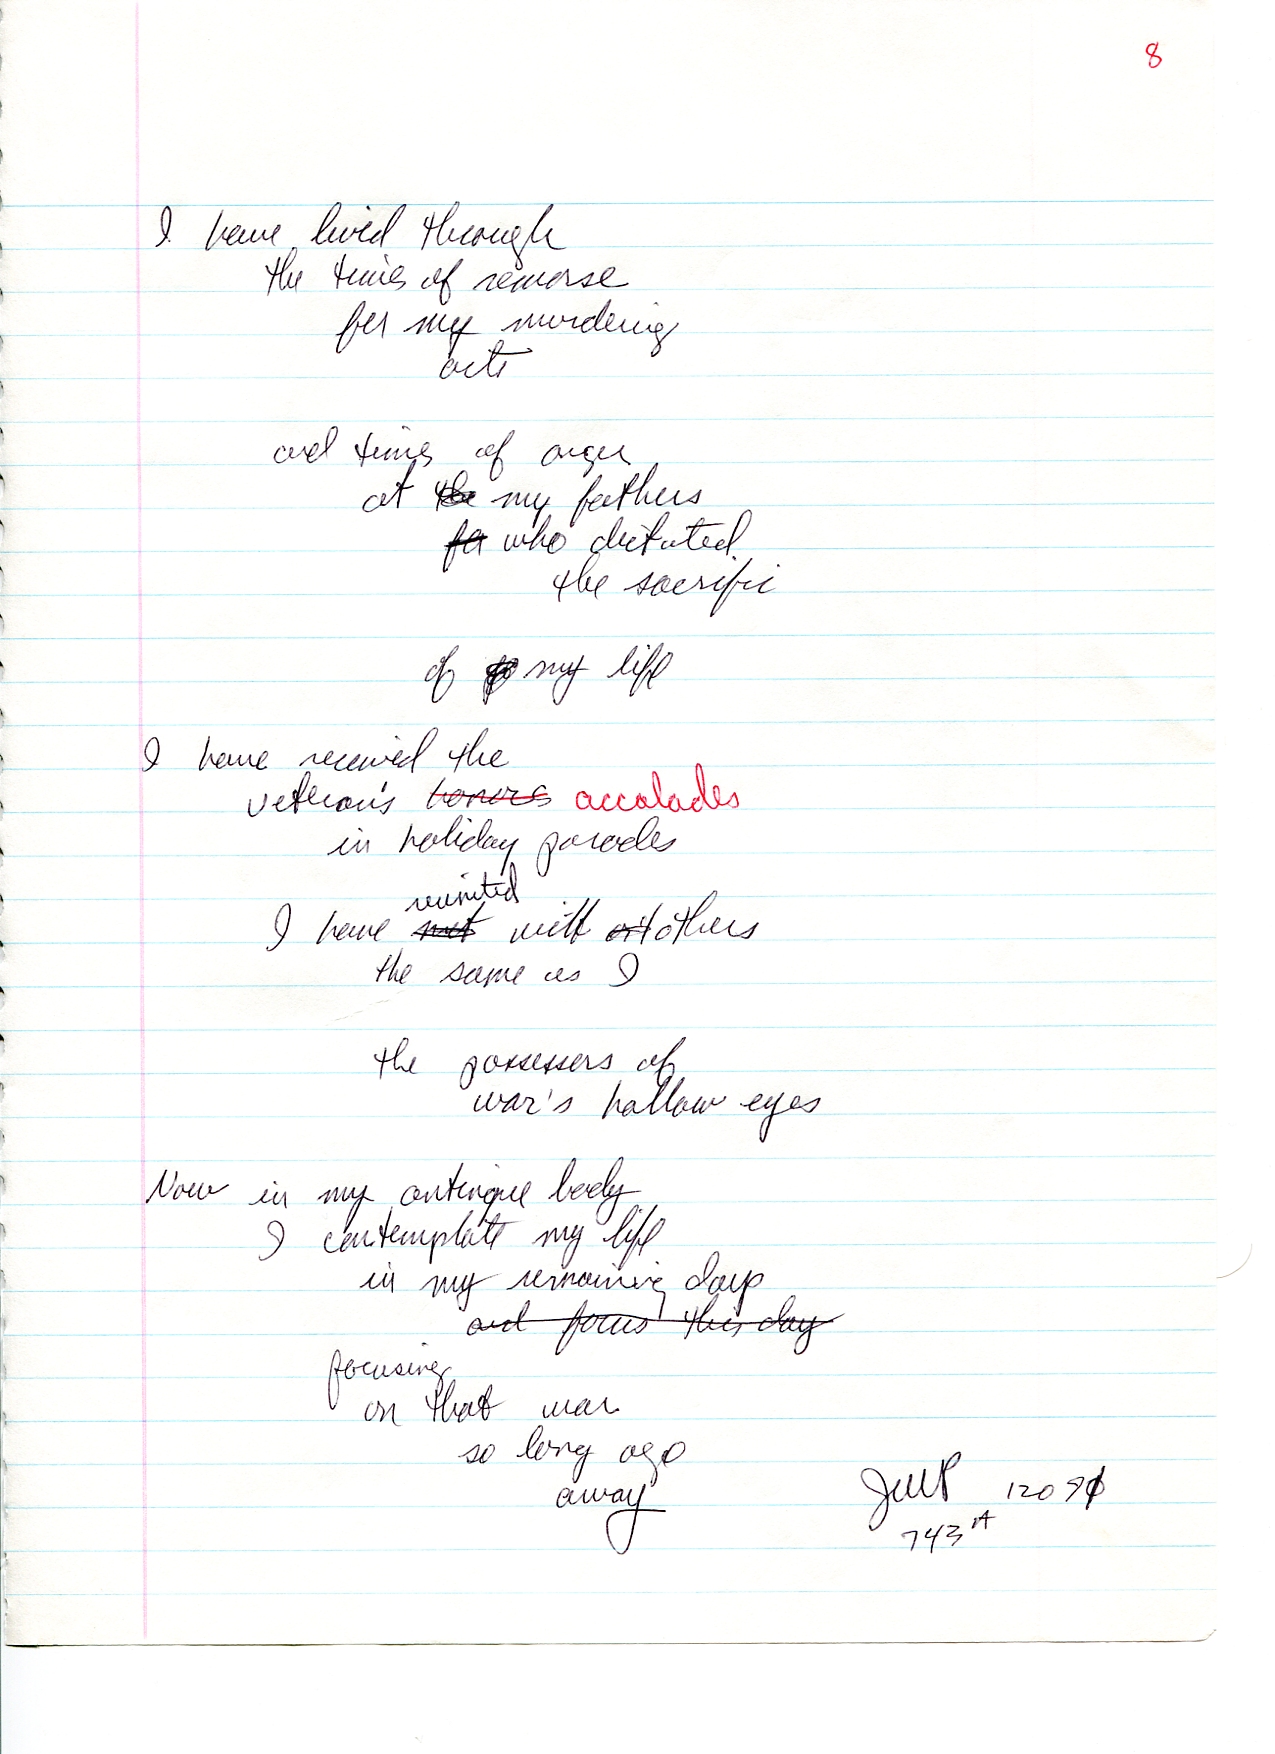 8
I have lived through
the times of remorse
for my murdering
acts
and times of anger
at the my fathers
fa who dictated
the sacrific
of my life
I have received the
veteran's honors accolades
in holiday parades
reunited
I have met with ot others
the same as I
the possessers of
war's hollow eyes
Now in my antinque body
I contemplate my life
in my remaining days
and focus this day
focusing
on that war
so long ago
away
JWP
743